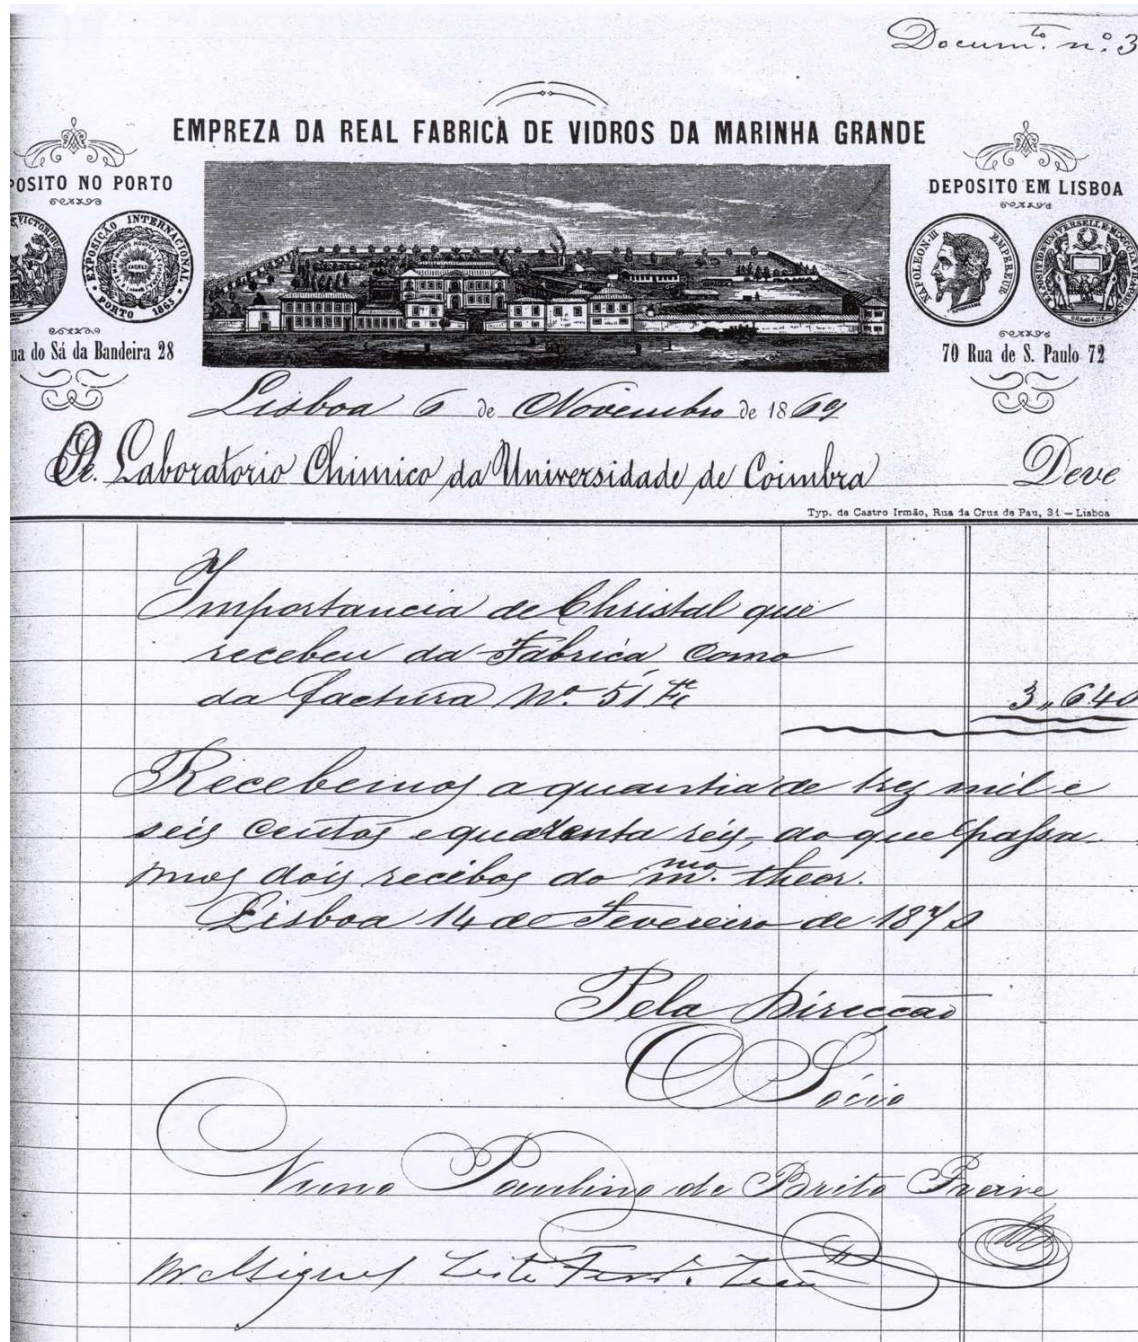 Docum.to n.º 3
EMPREZA DA REAL FABRICA DE VIDROS DA MARINHA GRANDE
POSITO NO PORTO
DEPOSITO EM LISBOA
EXPOSIÇÃO INTERNACIONAL
PORTO 1865
NAPOLEON III EMPEREUR
ua do Sá da Bandeira 28
70 Rua de S. Paulo 72
Lisboa 6 de Novembro de 1869
Laboratorio Chimico da Universidade de Coimbra Deve
Typ. de Castro Irmão, Rua da Cruz de Pau, 31 — Lisboa
Importancia de Christal que
recebeu da Fabrica como
da factura Nº 51 3,,640
Recebemos a quantia de trez mil e
seis centos e quarenta réis, do que passa-
mos dois recibos do m.mo theor.
Lisboa 14 de Fevereiro de 1870
Pela Direcção
O Sócio
Nuno Paulino de Brito Freire
Miguel Leite